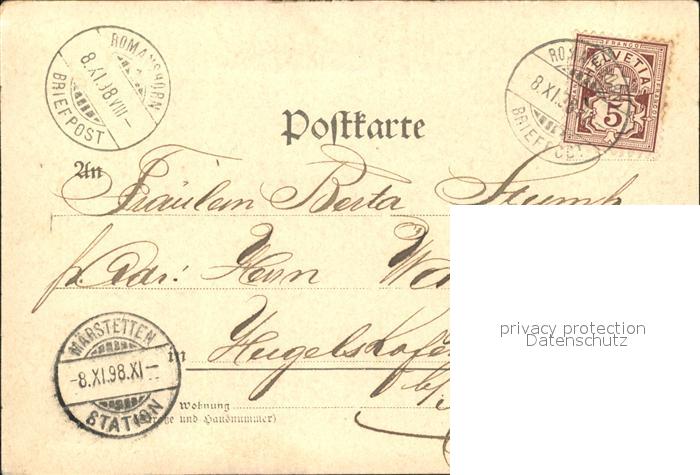 ROMANSHORN
8.XI.98.VIII-
BRIEFPOST
FRANCO
HELVETIA
5
8.XI.98
Postkarte
An
Fräulein Berta Stumpf
p. Adr: Herrn
privacy protection
Datenschutz
MÄRSTETTEN
-8.XI.98.XI-
STATION
in Hugelshofen
b/
Wohnung
(Straße und Hausnummer)